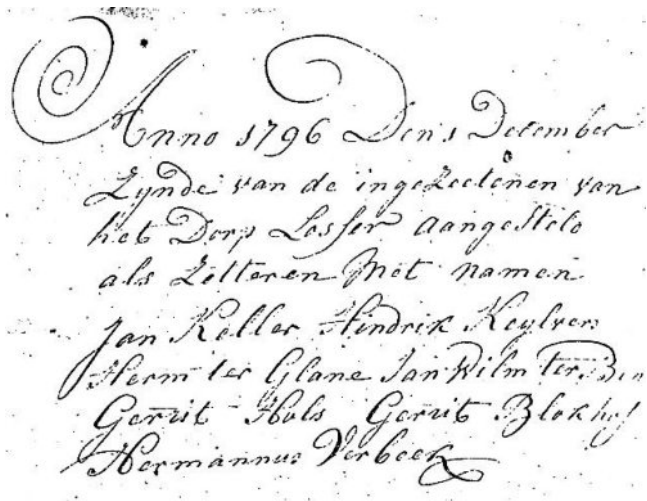 Anno 1796 Den 1 December
Zynde van de ingezeetenen van
het Dorp Losser aangesteld
als Zetteren Met namen
Jan Keller Hindrik Keylvers
Herm ter Glane Jan Wilm ter
Gerrit Huls Gerrit Blokhof
Hermannus Verbeek